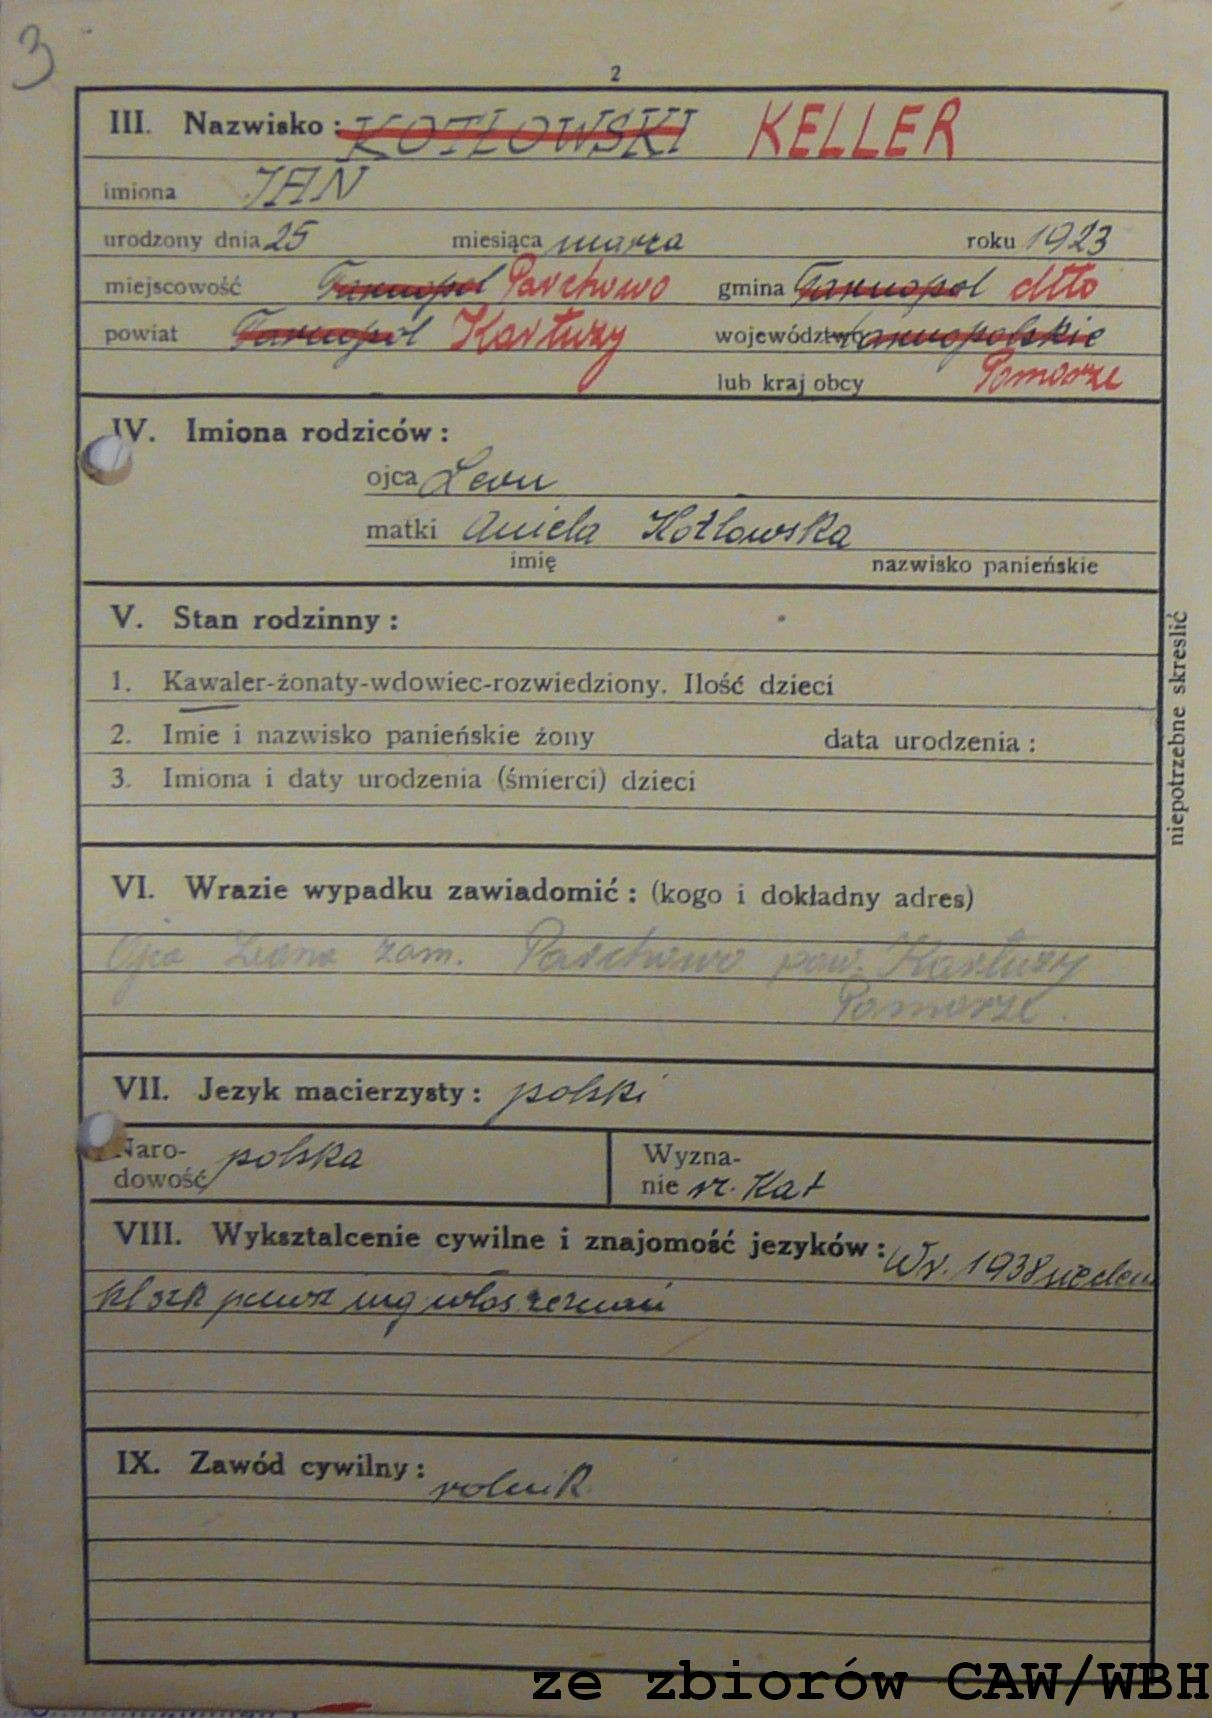 3
2
III. Nazwisko: KOTŁOWSKI KELLER
imiona JAN
urodzony dnia 25 miesiąca marca roku 1923
miejscowość Tarnopol Parchowo gmina Tarnopol dtto
powiat Tarnopol Kartuzy województwo tarnopolskie
lub kraj obcy Pomorze
IV. Imiona rodziców:
ojca Leon
matki Aniela Kotłowska
imię nazwisko panieńskie
V. Stan rodzinny:
1. Kawaler-żonaty-wdowiec-rozwiedziony. Ilość dzieci
2. Imie i nazwisko panieńskie żony data urodzenia:
3. Imiona i daty urodzenia (śmierci) dzieci
niepotrzebne skreslić
VI. Wrazie wypadku zawiadomić: (kogo i dokładny adres)
Ojca Leona zam. Parchowo pow. Kartuzy
Pomorze.
VII. Jezyk macierzysty: polski
Naro-
dowość polska
Wyzna-
nie rz. Kat
VIII. Wyksztalcenie cywilne i znajomość jezyków: W r. 1938 siedem
kl szk powsz
IX. Zawód cywilny: rolnik
ze zbiorów CAW/WBH